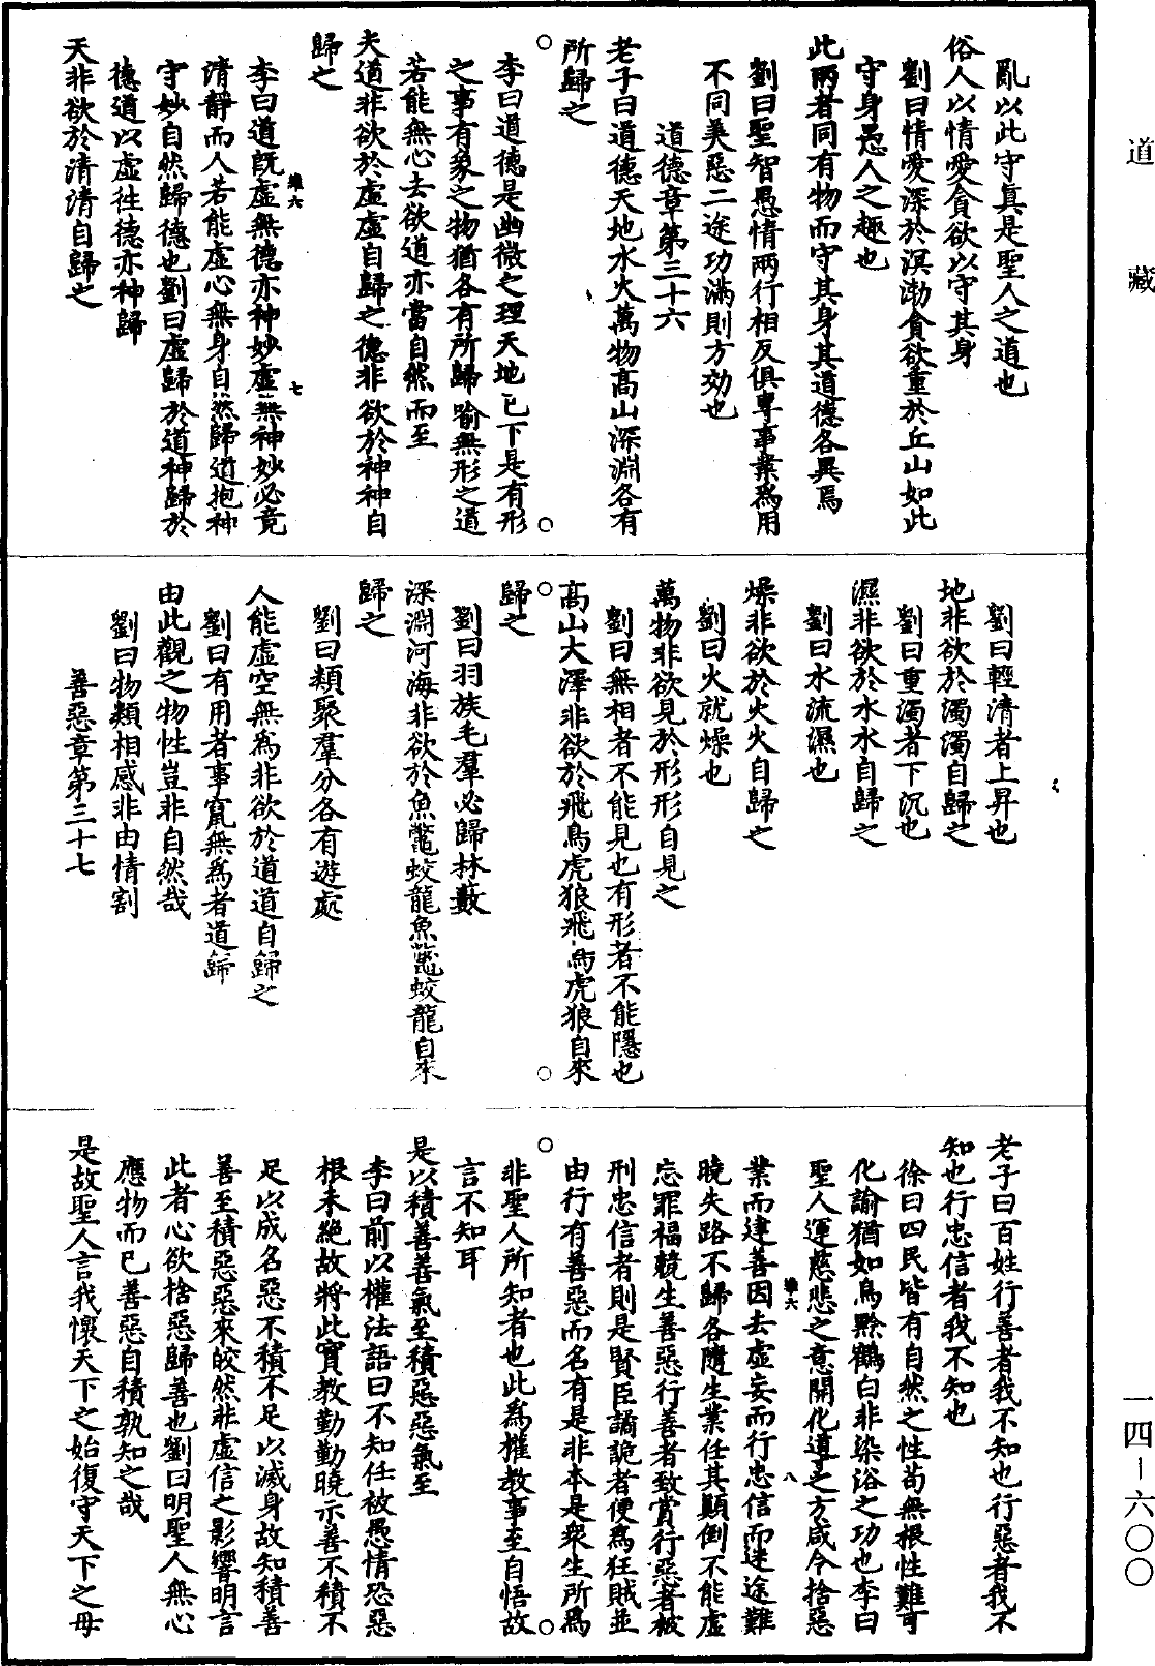 道藏
亂以此守真是聖人之道也
俗人以情愛貪欲以守其身
劉曰情愛深於溟渤貪欲重於丘山如此
守身愚人之趣也
此兩者同有物而守其身其道德各異焉
劉曰聖智愚情兩行相反俱專事業為用
不同美惡二途功滿則方効也
道德章第三十六
老子曰道德天地水火萬物高山深淵各有
所歸之
李曰道德是幽微之理天地已下是有形
之事有象之物猶各有所歸喻無形之道
若能無心去欲道亦當自然而至
夫道非欲於虛虛自歸之德非欲於神神自
歸之
維六
七
李曰道既虛無德亦神妙虛無神妙必竟
清靜而人若能虛心無身自然歸道抱神
守妙自然歸德也劉曰虛歸於道神歸於
德道以虛牲德亦神歸
天非欲於清清自歸之
劉曰輕清者上昇也
地非欲於濁濁自歸之
劉曰重濁者下沉也
濕非欲於水水自歸之
劉曰水流濕也
燥非欲於火火自歸之
劉曰火就燥也
萬物非欲見於形形自見之
劉曰無相者不能見也有形者不能隱也
高山大澤非欲於飛鳥虎狼飛鳥虎狼自來
歸之
劉曰羽族毛羣必歸林藪
深淵河海非欲於魚鼈蛟龍魚鼈蛟龍自來
歸之
劉曰類聚羣分各有遊處
人能虛空無為非欲於道道自歸之
劉曰有用者事寘無為者道歸
由此觀之物性豈非自然哉
劉曰物類相感非由情割
善惡章第三十七
老子曰百姓行善者我不知也行惡者我不
知也行忠信者我不知也
徐曰四民皆有自然之性苟無根性難可
化諭猶如烏黔鶴白非染浴之功也李曰
聖人運慈悲之意開化導之方咸令捨惡
維六
八
業而達善因去虛妄而行忠信而迷途難
曉失路不歸各隨生業任其顛倒不能虛
忘罪福競生善惡行善者致賞行惡者被
刑忠信者則是賢臣譎詭者便為狂賊並
由行有善惡而名有是非本是眾生所為
非聖人所知者也此為權教事至自悟故
言不知耳
是以積善善氣至積惡惡氣至
李曰前以權法語曰不知任被愚情恐惡
根未絕故將此實教勤勤曉示善不積不
足以成名惡不積不足以滅身故知積善
善至積惡惡來皎然非虛信之影響明言
此者心欲捨惡歸善也劉曰明聖人無心
應物而已善惡自積孰知之哉
是故聖人言我懷天下之始復守天下之母
一四－六〇〇